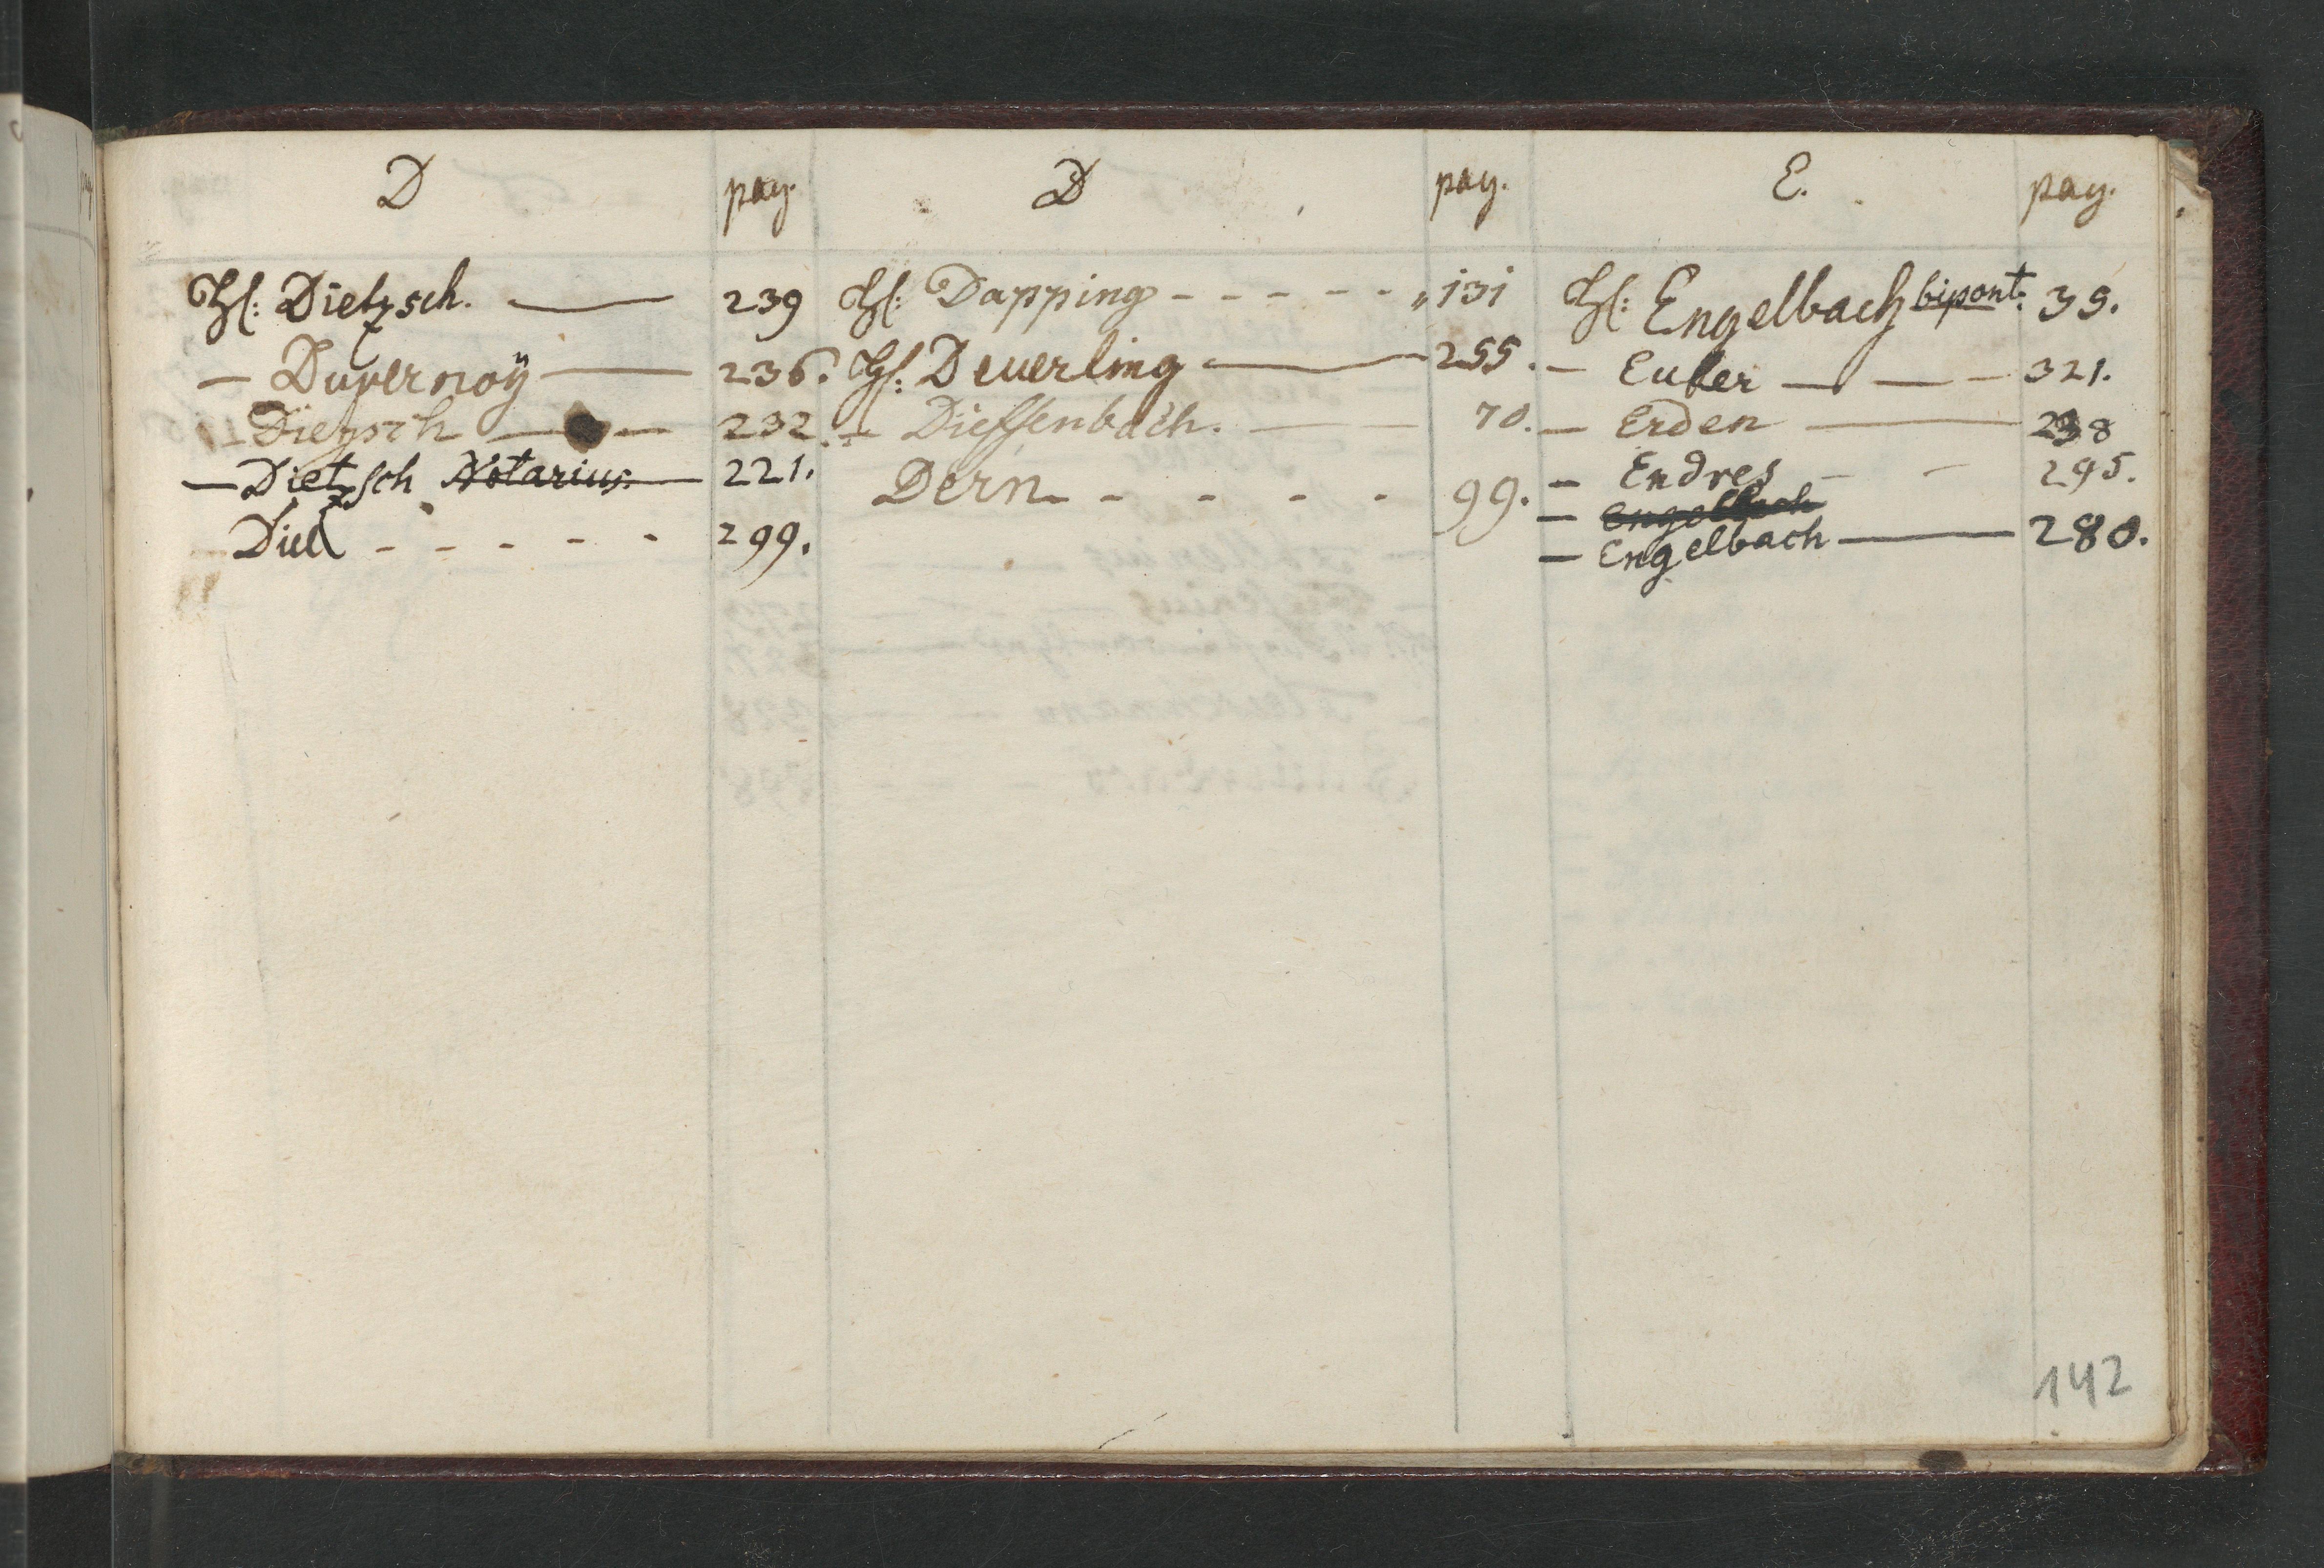 D pag.
H: Dietzsch. — 239
— Duvernoÿ — 236.
— Dietzsch — 232.
— Dietzsch Notarius. — 221.
Diel - - - - - 299.
D pag.
H: Dapping - - - - - 131
H: Deuerling — 255.
— Dieffenbach. — 70.
Dern - - - - - 99.
E. pag.
H: Engelbach bipont: 39.
— Euler — — — 321.
— Erden — 238
— Endres — — 295.
— Engelbach
— Engelbach — 280.
142